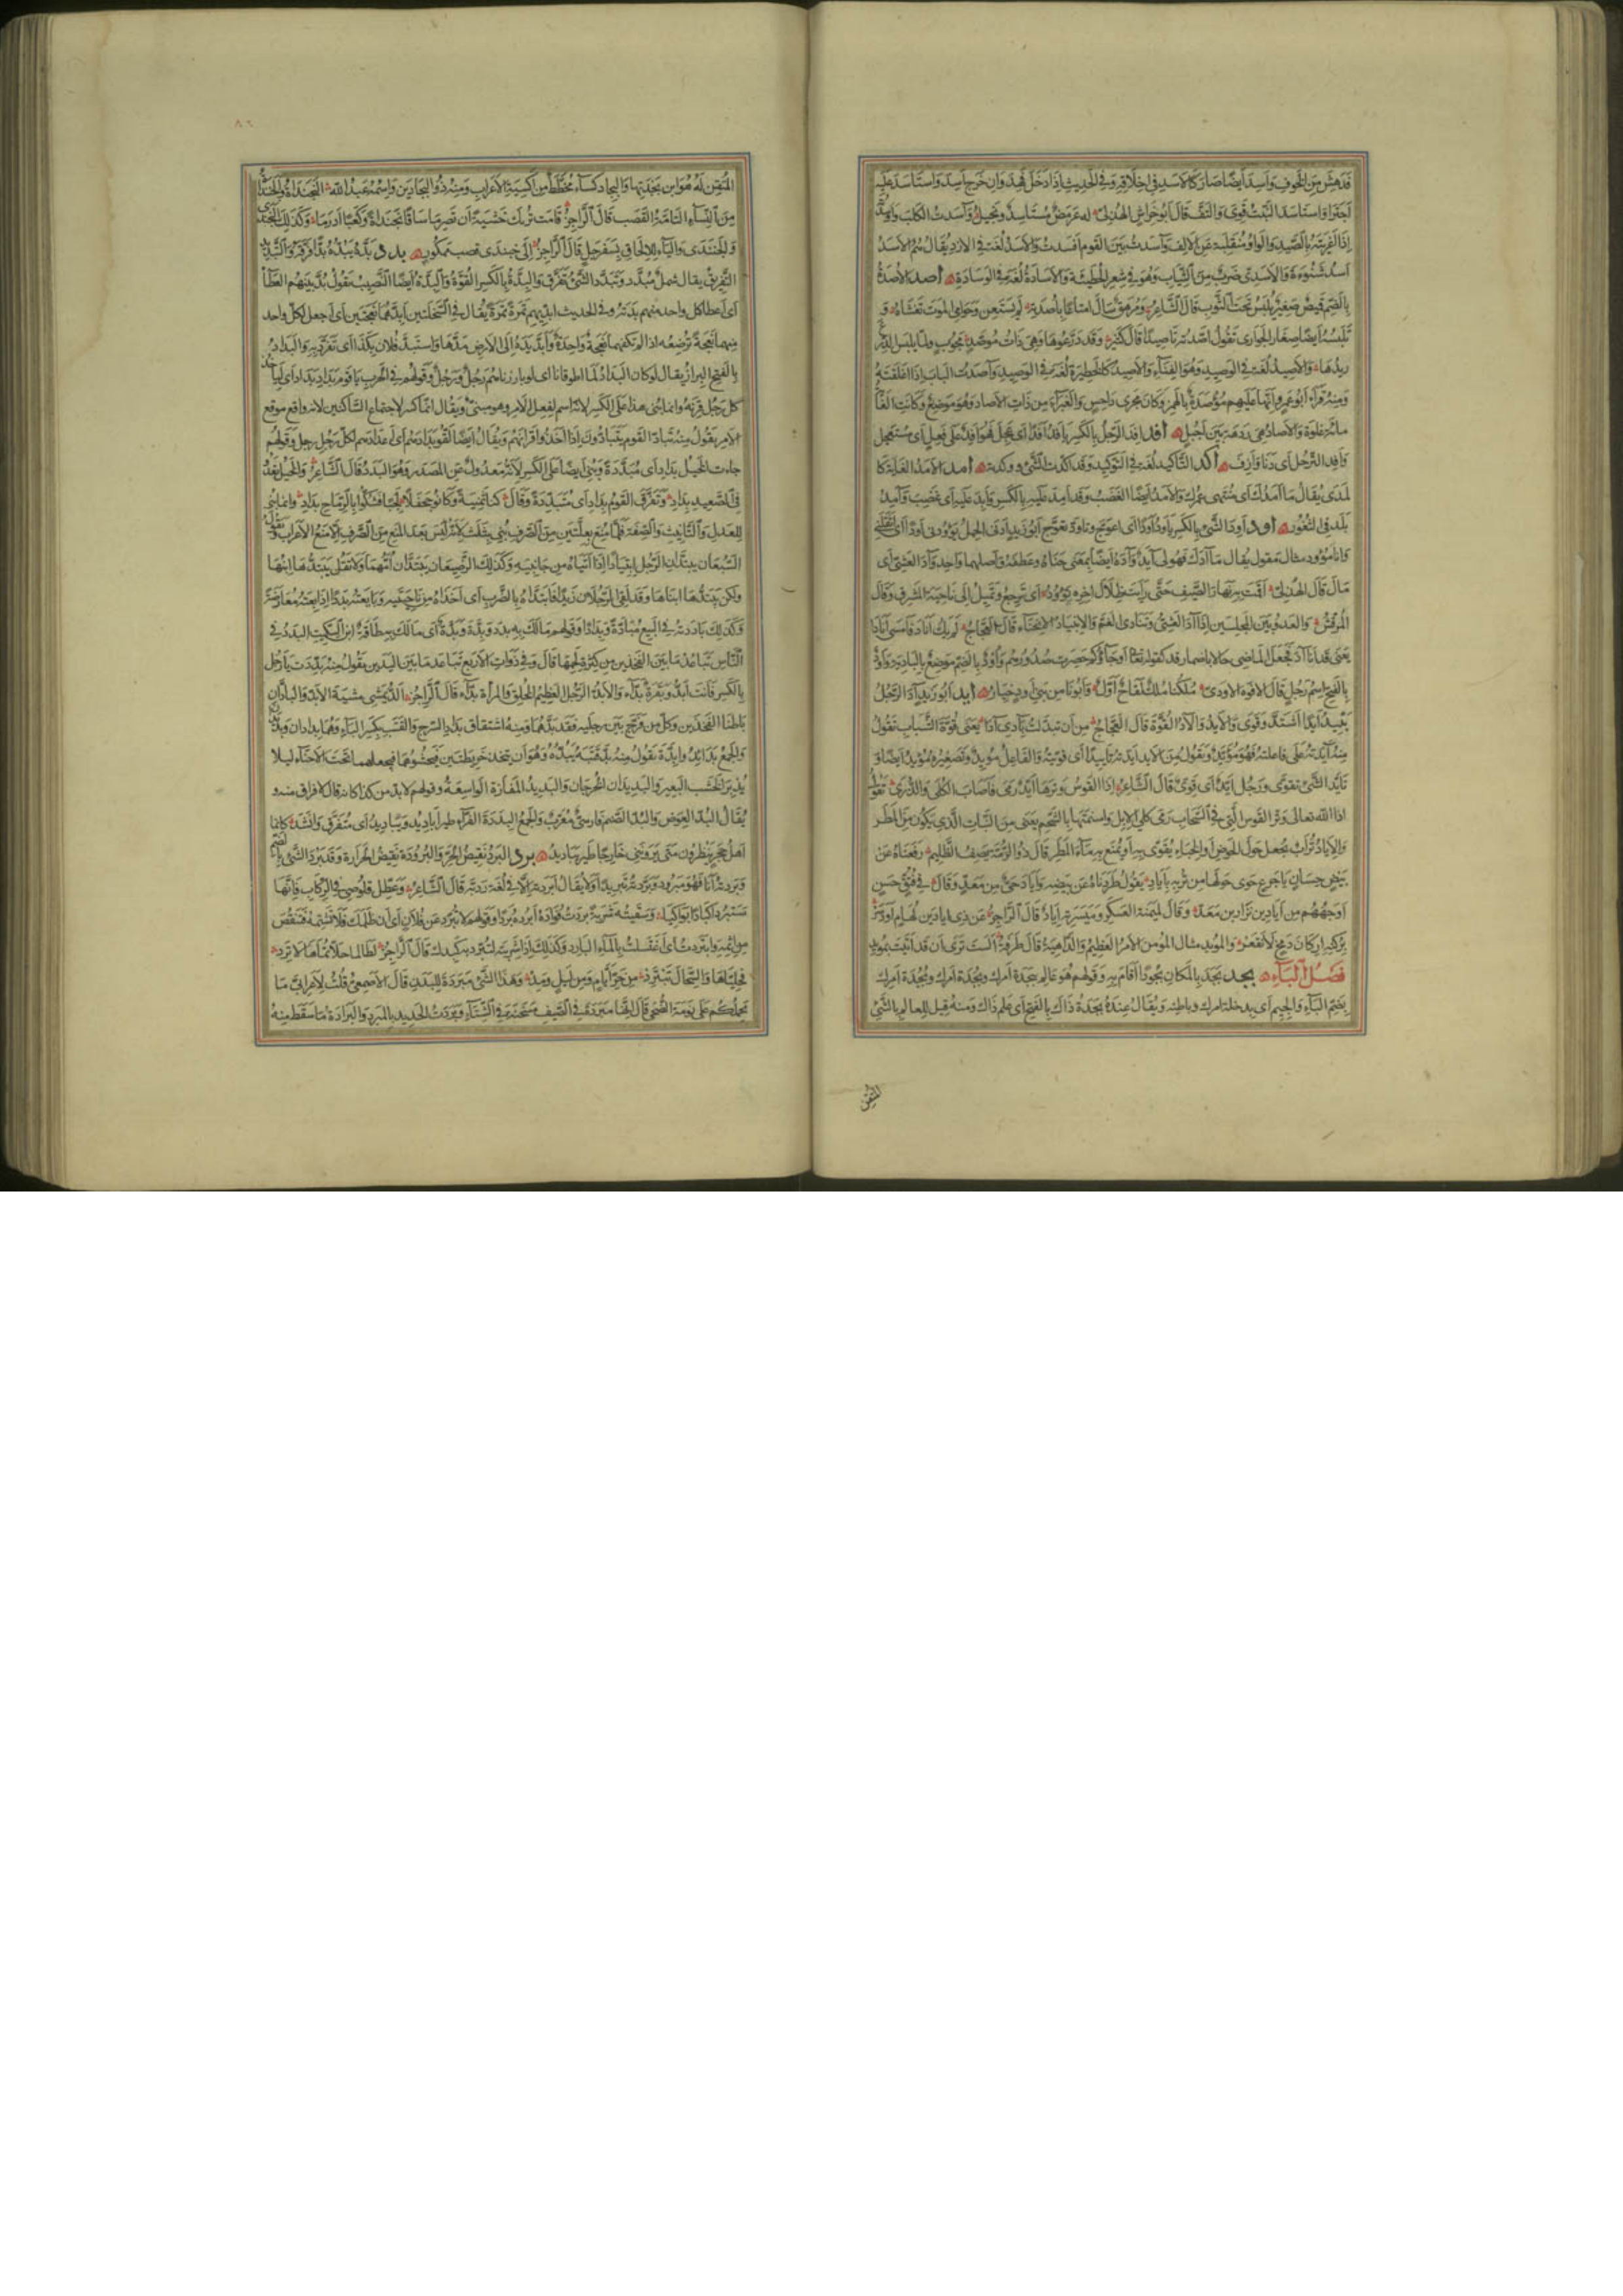 فدهش من الخوف وأسد أيضا صار كالأسد في اخلاقه وفي الحديث اذا دخل فهد وان خرج أسد واستأسد عليه
اجترأ واستأسد النبت قوى والتف قال أبو خراش الهذلي له عرمض مستأسد ونجيل وآسدت الكلب وأوسدته
إذا أغريته بالصيد والواو منقلبة عن الالف وآسدت بين القوم أفسدت والأسد لغة في الازد يقال هم الأسد
أسد شنوءة والأسدي ضرب من الثياب وهو في شعر الحطيئة والاسادة لغة في الوسادة أصد الأصدة
بالضم قميص صغير يلبس تحت الثوب قال الشاعر ومرهق سال امتاعا بأصدته لم يستعن وحوامي الموت تغشاه و
تلبسه أيضا صغار الجواري تقول أصدته تأصيدا قال كثير وقد درعوها وهي ذات مؤصد مجوب ولما يلبس الدرع
ريدها والأصيد لغة في الوصيد وهو الفناء والأصيدة كالحظيرة لغة في الوصيدة وآصدت الباب إذا أغلقته
ومنه قرأ أبو عمرو انها عليهم مؤصدة بالهمز وكان مجرى داحس والغبراء من ذات الاصاد وهو موضع وكانت الغاية
مائة غلوة والاصاد هي ردهة بين أجبل أفد أفد الرجل بالكسر يأفد أفدا أي عجل فهو أفد على فعل أي مستعجل
وأفد الترحل أي دنا وأزف أكد التأكيد لغة في التوكيد وقد أكدت الشيء ووكدته أمد الأمد الغاية كا
لمدى يقال ما أمدك أي منتهى عمرك والأمد أيضا الغضب وقد أمد عليه بالكسر وأبد عليه أي غضب وآمد
بلد في الثغور أود أود الشيء بالكسر يأود أودا أي اعوج وتأود تعوج أبو زيد آدنى الحمل يؤودنى أودا أي أثقلني
وأنا مؤود مثال مقول يقال ما آدك فهو لي آيد وآده أيضا بمعنى حناه وعطفه وأصلهما واحد وآد العشى أي
مال قال الهذلي أقمت به نهار الصيف حتى رأيت ظلال آخره تؤود أي ترجع وتميل إلى ناحية المشرق وقال
المرقش والعدو بين المجلسين إذا آد العشي وتنادى العم والانئياد الانحناء قال العجاج لم يك ينآد فأمسى انآدا
يعني قد انآد فجعل الماضي حالا باضمار قد كقوله تعالى أو جاؤكم حصرت صدورهم وأود بالضم موضع بالبادية وأود
بالفتح اسم رجل قال الافوه الاودي ملكنا ملك لقاح أول وأبونا من بني أود خيار أيد أبو زيد آد الرجل
يئيد أيدا اشتد وقوى والأيد والآد القوة قال العجاج من أن تبدلت بآدي آدا يعني قوة الشباب تقول
منه آيدته على فاعلته فهو مؤيد وتقول من الأيد أيدته تأييدا أي قويته والفاعل مؤيد وتصغيره مؤيد أيضا و
تأيد الشيء تقوى ورجل أيد أي قوي قال الشاعر إذا القوس وترها أيد رمى فأصاب الكلى والذرى تقول
اذا الله تعالى وتر القوس التي في السحاب رمى كلى الابل وأسنمتها بالشحم يعني من النبات الذي يكون من المطر
والإياد تراب يجعل حول الحوض أو الخباء يقوى به أو يمنع به ماء المطر قال ذو الرمة يصف الظليم دفعناه عن
بيض حسان بأجرع حوى حولها من تربه بإياد يقول طردناه عن بيضه وإياد حي من معد وقال في فتو حسن
أوجههم من إياد بن نزار بن معد وقال لميمنة العسكر وميسرته إياد قال الراجز عن ذي إيادين لهام لو دسر
بركنه أركان دمخ لانقعر والمؤيد مثال المؤمن الأمر العظيم والداهية قال طرفة ألست ترى أن قد أتيت بمؤيد
فصل الباء بجد بجد بالمكان بجودا أقام به وقولهم هو عالم ببجدة أمرك وبجدة أمرك وبجدة أمرك
بضم الباء والجيم أي بدخلة أمرك وباطنه ويقال عنده بجدة ذاك بالفتح أي علم ذاك ومنه قيل للعالم بالشيء
المتقن
المتقن له هو ابن بجدتها والبجاد كساء مخطط من أكسية الأعراب ومنه ذو البجادين واسمه عبد الله البخنداة والخبنداة
من النساء التامة القصب قال الراجز قامت تريك خشية أن تصرما ساقا بخنداة وكعبا أدرما وكذلك البخندى
والخبندى والياء للإلحاق بسفرجل قال الراجز إلى خبندى قصب ممكور بدد بده يبده بدا فرقه والتبديد
التفريق يقال شمل مبدد وتبدد الشيء تفرق والبدة بالكسر القوة والبدة أيضا النصيب تقول أبد بينهم العطا
أي أعطا كل واحد منهم بدته وفي الحديث أبديهم تمرة تمرة يقال في السخلتين أبدهما نعجتين أي اجعل لكل واحد
منهما نعجة ترضعه اذا لم تكفهما نعجة واحدة وأبد يده إلى الأرض مدها واستبد فلان بكذا أي تفرد به والبداد
بالفتح البراز يقال لو كان البداد لما أطاقونا أي لو بارزناهم رجل ورجل وقولهم في الحرب يا قوم بداد بداد أي ليأخذ
كل رجل قرنه وانما بني هذا على الكسر لانه اسم لفعل الأمر وهو مبني ويقال انما كسر لاجتماع الساكنين لانه واقع موقع
الأمر يقول منه تباد القوم يتبادون إذا أخذوا أقرانهم ويقال أيضا لقوا بدادهم أي أعدادهم لكل رجل رجل وقولهم
جاءت الخيل بداد أي متبددة وبني أيضا على الكسر لأنه معدول عن المصدر وهو البدد قال الشاعر والخيل تعدو
في الصعيد بداد وتفرق القوم بداد أي متبددة وقال كنا ثمانية وكانوا جحفلا لجبا فشلوا بالرماح بداد وانما بني
للعدل والتأنيث والصفة فلما منع بعلتين من الصرف بني بثلاث لأنه ليس بعد المنع من الصرف إلا منع الإعراب وتقول
السبعان يبتدان الرجل ابتدادا إذا أتياه من جانبيه وكذلك الرضيعان يبتدان أمهما ولا تقل يبتدها ابنها
ولكن يبتدها ابناها وقد لقي الرجلان زيدا فابتداه بالضرب أي أخذاه من ناحيتيه وبايعته بددا إذا بعته معارضة
وكذلك باددته في البيع مبادة وبدادا وقولهم مالك به بدد وبدة وبدة أي مالك به طاقة ابن السكيت البدد في
الناس تباعد ما بين الفخذين من كثرة لحمهما قال وفي ذوات الأربع تباعد ما بين اليدين تقول منه بددت يا رجل
بالكسر فأنت أبد وبقرة بداء والأبد الرجل العظيم الخلق والمرأة بداء قال الراجز ألد يمشي مشية الأبد والبادان
باطنا الفخذين وكل من فرج بين رجليه فقد بدهما ومنه اشتقاق بداد السرج والقتب بكسر الباء وهما بدادان وبديدان
والجمع بدائد وأبدة تقول منه بد قتبه يبده وهو أن يتخذ خريطتين فيحشوهما فيجعلهما تحت الأحناء ليلا
يدبر الخشب البعير والبديدان الخرجان والبديد المفازة الواسعة وقولهم لا بد من كذا كانه قال لا فراق منه و
يقال البد العوض والبد الصنم فارسي معرب والجمع البددة الفراء طير أباديد ويباديد أي متفرق وأنشد كأنما
أهل حجر ينظرون متى يرونني خارجا طير يباديد برد البرد نقيض الحر والبرودة نقيض الحرارة وقد برد الشيء بالضم
وبردته أنا فهو مبرود وبردته تبريدا ولا يقال أبردته إلا في لغة رديئة قال الشاعر وعطل قلوصي في الركاب فإنها
ستبرد أكبادا وتبكي بواكيا وسقيته شربة بردت فؤاده أبرده بردا وقولهم لا تبرد عن فلان أي إن ظلمك فلا تشتمه فتنقص
من إثمه وابتردت أي اغتسلت بالماء البارد وكذلك إذا شربته لتبرد به كبدك قال الراجز لطالما حلأتماها لا ترد
فخلياها والسجال تبترد من حر أيام ومن ليل ومد وهذا الشيء مبردة للبدن قال الأصمعي قلت لأعرابي ما
يحملكم على نومة الضحى قال إنها مبردة في الصيف مسخنة في الشتاء وبردت الحديد بالمبرد والبرادة ما سقط منه